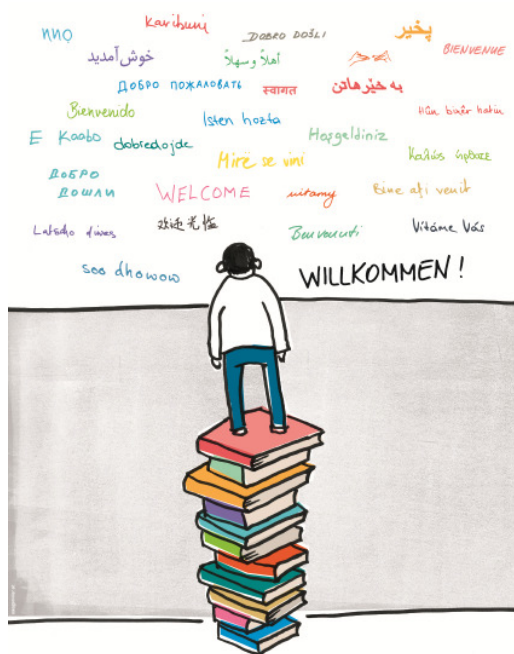 Karibuni
DOBRO DOŠLI
پخير
BIENVENUE
خوش آمدید
أهلاً وسهلاً
ДОБРО ПОЖАЛОВАТЬ
स्वागत
به خێر هاتن
Bienvenido
Isten hozta
Hûn bixêr hatin
E Kaabo
dobredojde
Hoşgeldiniz
Mirë se vini
Καλώς ήρθατε
ДОБРО
ДОШЛИ
WELCOME
witamy
Bine ați venit
Latscho diwes
欢迎光临
Benvenuti
Vítáme Vás
soo dhowow
WILLKOMMEN!